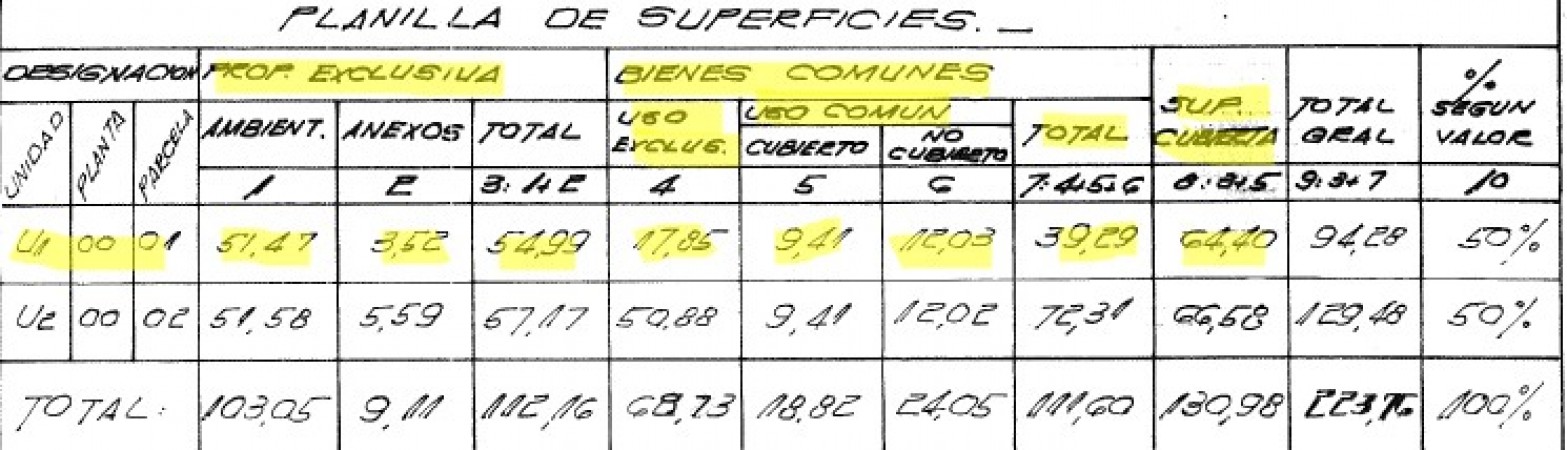 PLANILLA DE SUPERFICIES.—
DESIGNACION PROP. EXCLUSIVA BIENES COMUNES SUP. CUBIERTA TOTAL GRAL % SEGUN VALOR
UNIDAD PLANTA PARCELA AMBIENT. ANEXOS TOTAL USO EXCLUS. USO COMUN TOTAL
CUBIERTO NO CUBIERTO
1 2 3:1+2 4 5 6 7:4+5+6 8:3+5 9:3+7 10
U1 00 01 51,47 3,52 54,99 17,85 9,41 12,03 39,29 64,40 94,28 50%
U2 00 02 51,58 5,59 57,17 50,88 9,41 12,02 72,31 66,58 129,48 50%
TOTAL: 103,05 9,11 112,16 68,73 18,82 24,05 111,60 130,98 223,76 100%